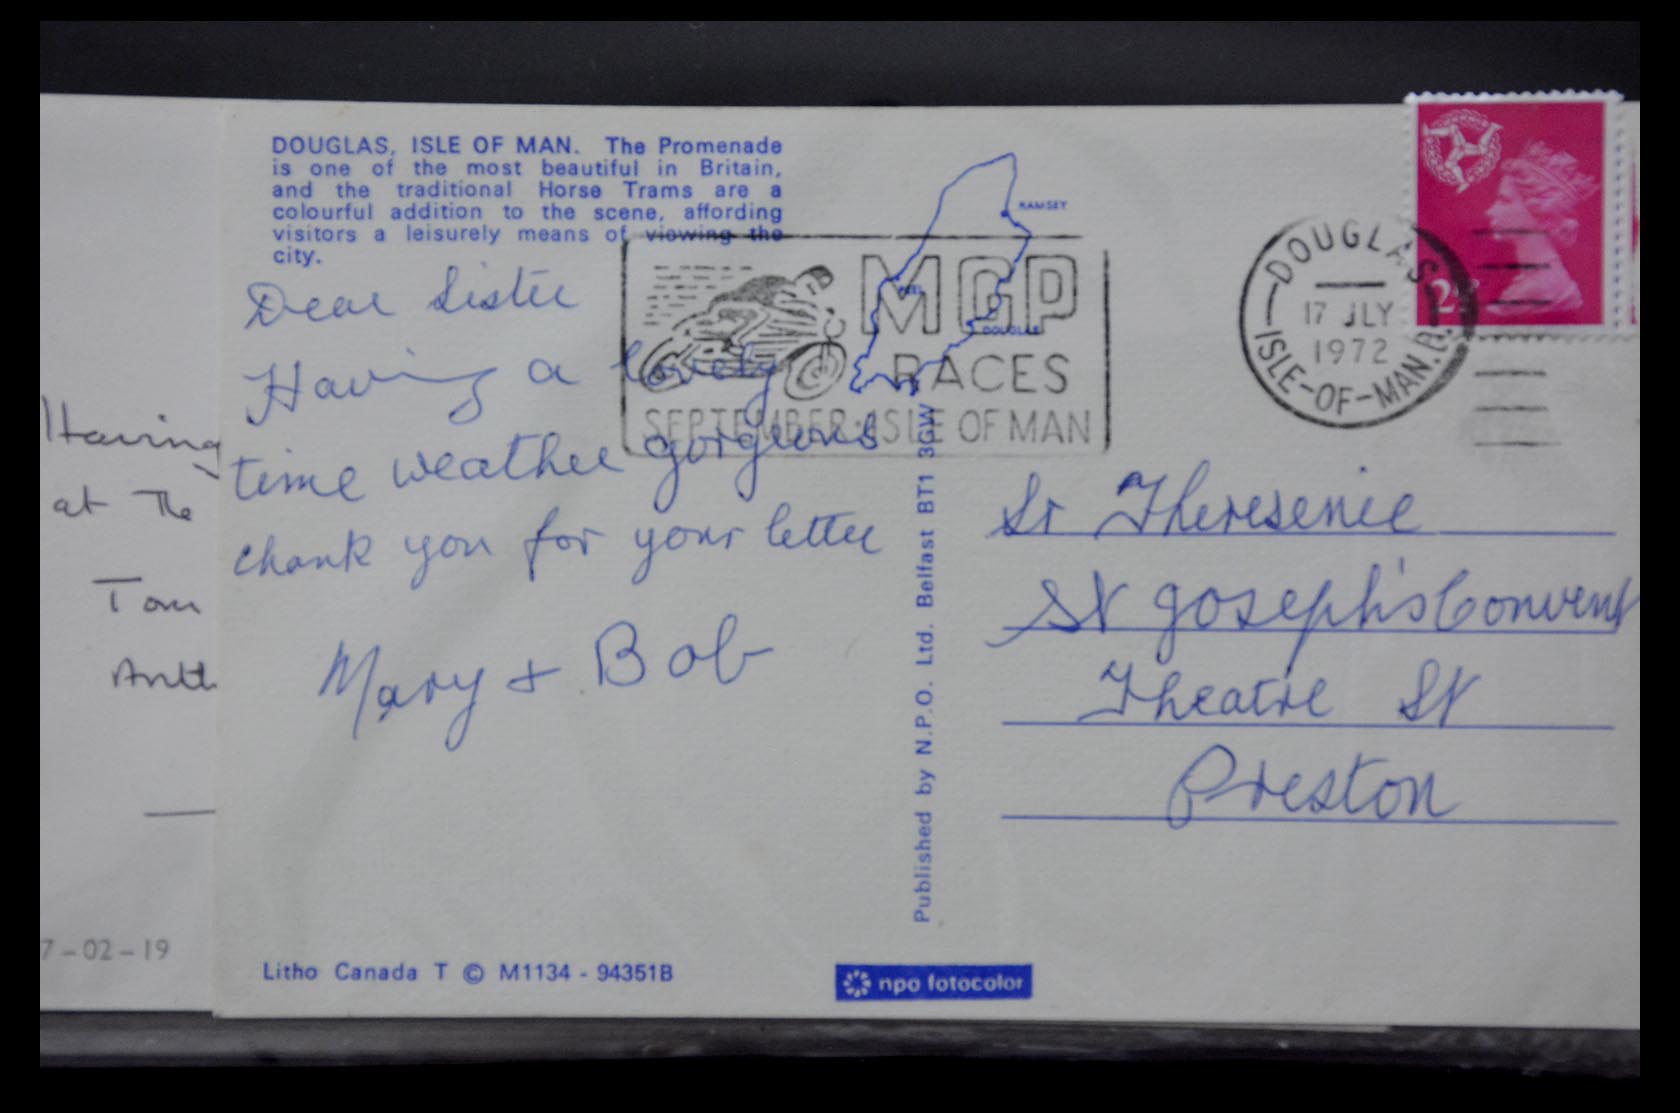 DOUGLAS, ISLE OF MAN. The Promenade
is one of the most beautiful in Britain,
and the traditional Horse Trams are a
colourful addition to the scene, affording
visitors a leisurely means of viewing the
city.
Dear Sister
Having a lovely
time weather gorgeous
thank you for your letter
Mary + Bob
RAMSEY
PEEL
DOUGLAS
MGP
RACES
SEPTEMBER · ISLE OF MAN
DOUGLAS
17 JLY
1972
ISLE-OF-MAN.
Sr Theresenie
St Joseph's Convent
Theatre St
Preston
Published by N.P.O. Ltd. Belfast BT1 3GW
Litho Canada T © M1134 - 94351B
npo fotocolor
Having
at The
Tom
7-02-19